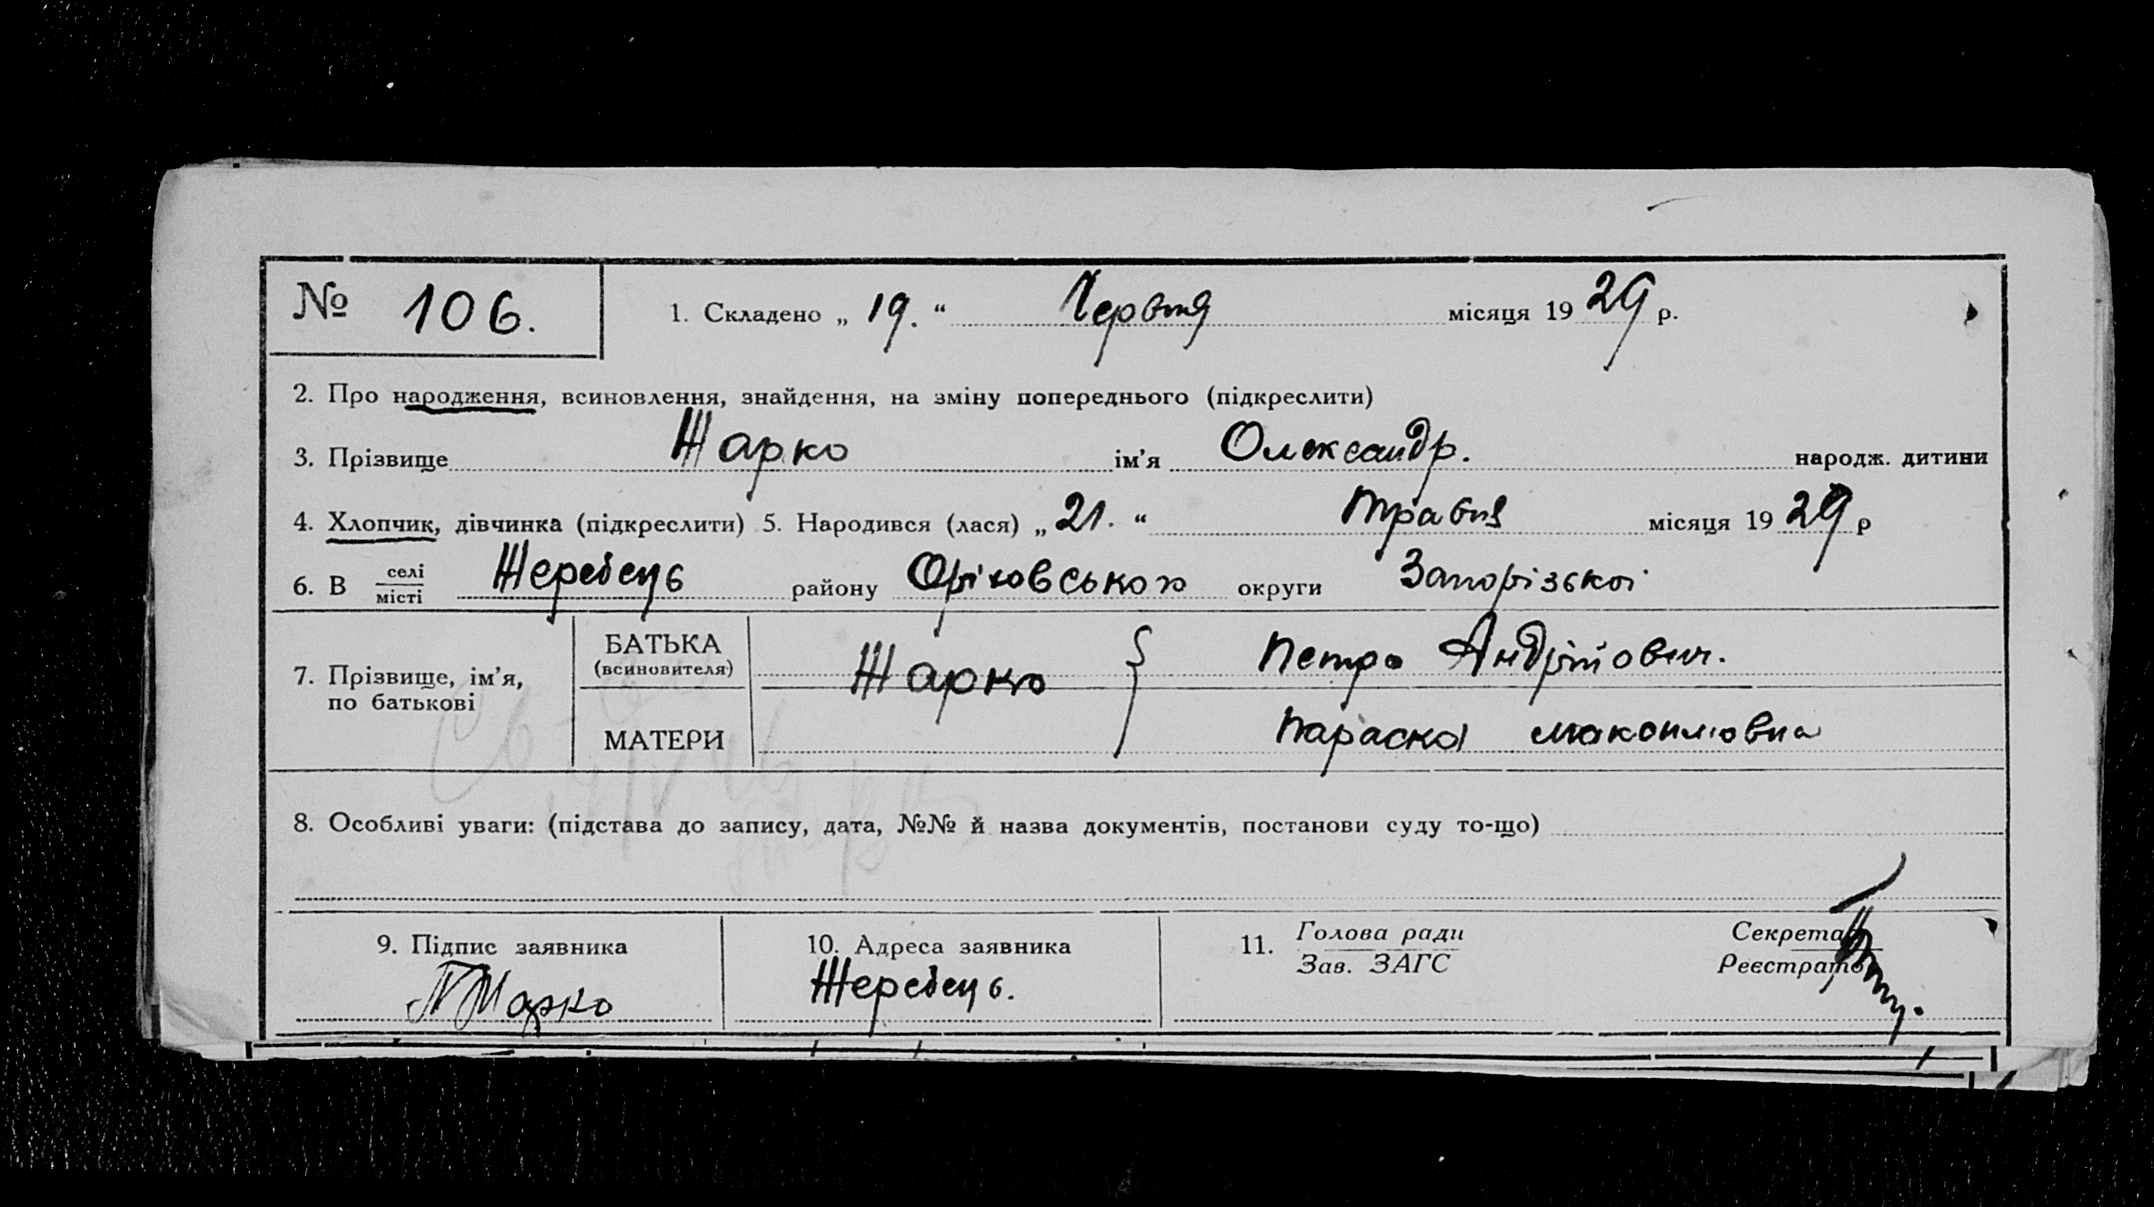 № 106.
1. Складено „ 19. “ Червня місяця 1929 р.
2. Про народження, всиновлення, знайдення, на зміну попереднього (підкреслити)
3. Прізвище Жарко ім’я Олександр. народж. дитини
4. Хлопчик, дівчинка (підкреслити) 5. Народився (лася) „ 21. “ Травня місяця 1929 р
6. В селі Жеребець району Оріховського округи Запорізької
місті
7. Прізвище, ім’я, по батькові
БАТЬКА (всиновителя) Жарко Петро Андрійович.
МАТЕРИ Параска Максимовна
8. Особливі уваги: (підстава до запису, дата, №№ й назва документів, постанови суду то-що)
9. Підпис заявника 10. Адреса заявника 11. Голова ради Секретар
Зав. ЗАГС Реєстратор
П Жарко Жеребець.